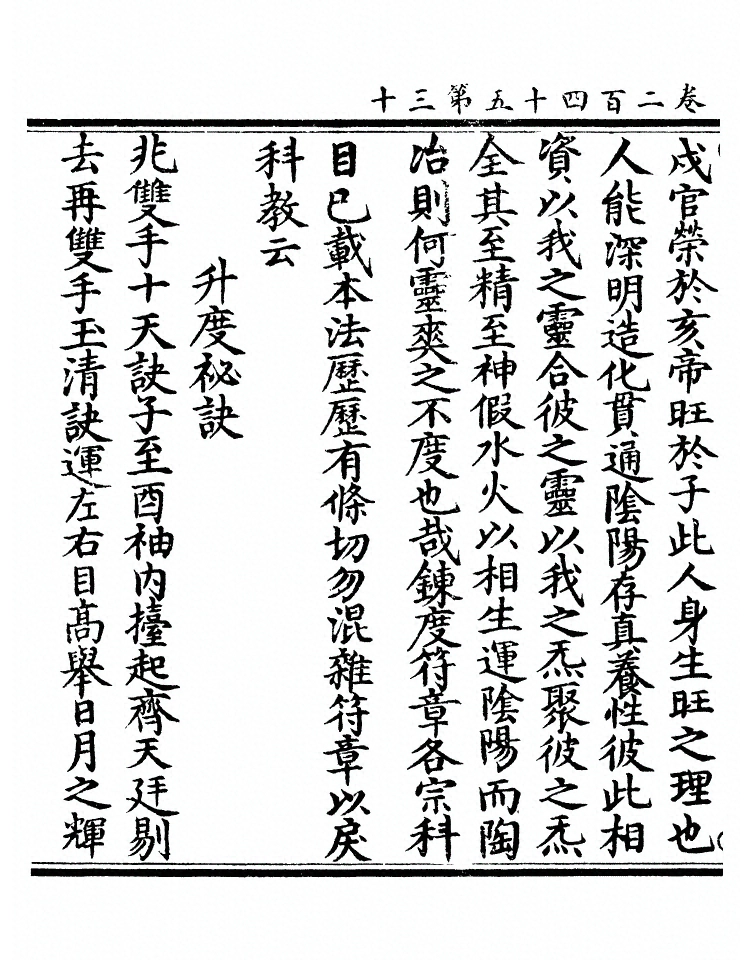 卷二百四十五第三十
戍官榮於亥帝旺於子此人身生旺之理也
人能深明造化貫通陰陽存真養性彼此相
資以我之靈合彼之靈以我之炁聚彼之炁
全其至精至神假水火以相生運陰陽而陶
冶則何靈爽之不度也哉鍊度符章各宗科
目已載本法歷歷有條切勿混雜符章以戾
科教云
升度祕訣
兆雙手十天訣子至酉袖内擡起齊天廷剔
去再雙手玉清訣運左右目高舉日月之輝